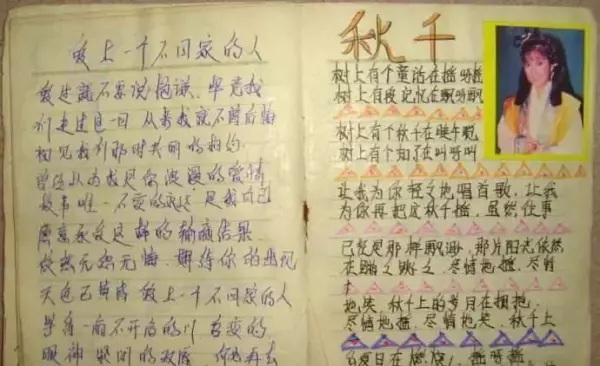 爱上一个不回家的人
爱过就不要说抱歉, 毕竟我
们走过这一回 从来我就不曾后悔
初见我们那时共同的相约
曾经以为我是你浪漫的爱情
故事唯一不变的永远 是我自己
愿意承受这样的输赢结果
依然无怨无悔 期待你的出现
天色已黄昏 爱上一个不回家的人
等待一扇不开启的门 善变的
眼神 紧闭的双唇 何必再去
秋千
树上有个童话在摇呀摇
树上有段记忆在飘呀飘
树上有个秋千在睡午觉
树上有个知了在叫呀叫
让我为你轻轻地唱首歌, 让我
为你再把这秋千摇, 虽然往事
已经是那样飘渺, 那片阳光依然
在蹦之跳之, 尽情地摇, 尽情
地笑 秋千上的岁月在拥抱
尽情地摇, 尽情地笑, 秋千上
的夏日在燃烧, 摇呀摇